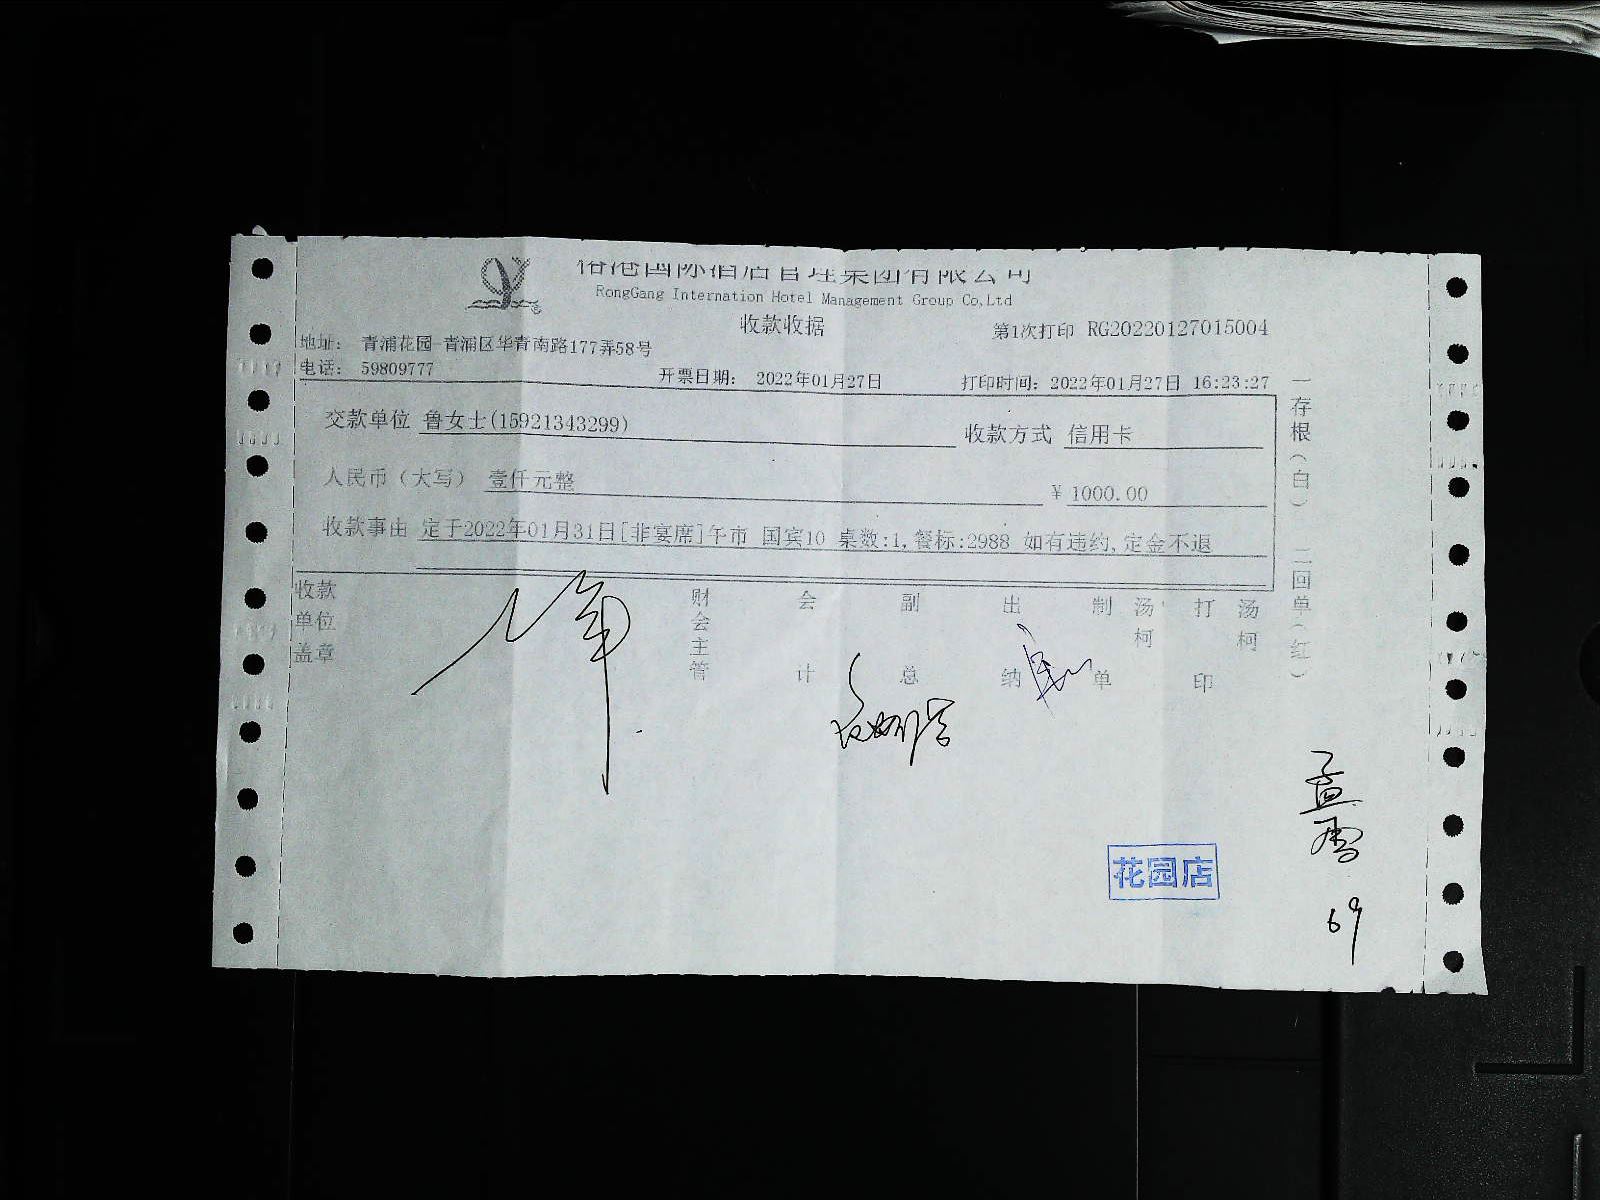 国际酒店管理集团有限公司
RongGang Internation Hotel Management Group Co,Ltd
收款收据
第1次打印 RG20220127015004
地址: 青浦花园-青浦区华青南路177弄58号
电话: 59809777
开票日期: 2022年01月27日
打印时间: 2022年01月27日 16:23:27
交款单位 鲁女士(15921343299)
收款方式 信用卡
人民币(大写) 壹仟元整
¥ 1000.00
收款事由 定于2022年01月31日[非宴席]午市 国宾10 桌数:1,餐标:2988 如有违约,定金不退
收款单位盖章
财会主管
会计
副总
出纳
制单
汤柯
打印
汤柯
一存根(白) 二回单(红)
花园店
69